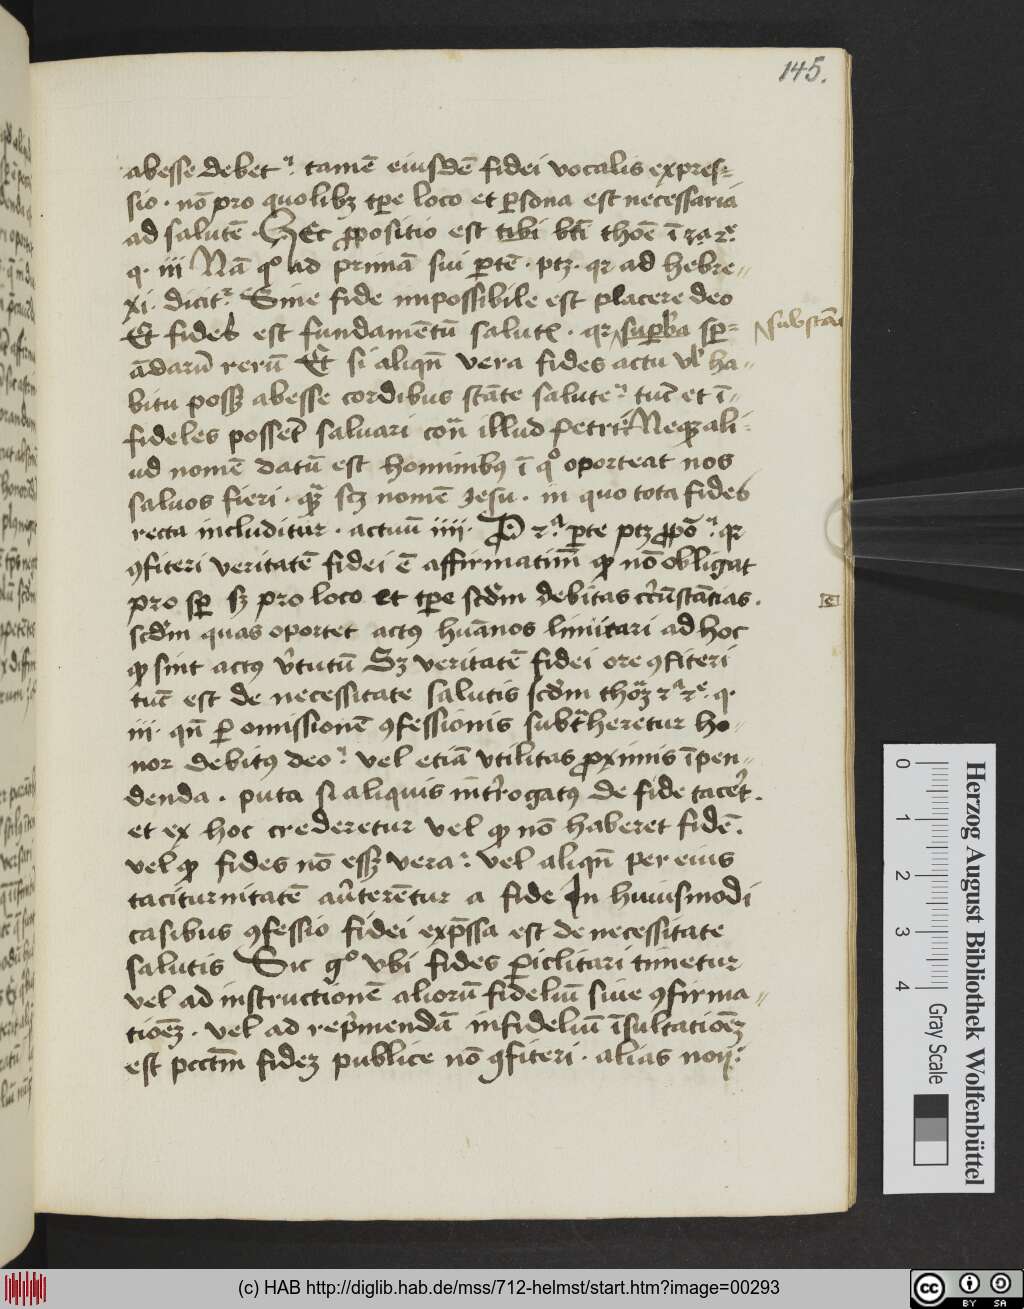 145.
abesse debet᷑. tamē eiusdē fidei vocalis expres⸗
sio. nō pro quolibꝫ tp̄e loco et ꝑsona est necessaria
ad salutē. Hec ꝓpositio est tibi bt̄i thōe ī 2a 2ᵉ.
q. iii Nā qᵒ ad primā sui ꝑtē. ptꝫ. qꝛ ad hebre⸗
xi. dicit᷑. Sine fide impossibile est placere deo
Et fides est fundamētū salutꝭ. qꝛ suꝑba sp̄⸗
substācia
ādarū rerū Et si aliqn̄ vera fides actu vl̓ ha⸗
bitu possꝫ abesse cordibus stāte salute. tūc et ī⸗
fideles possēt saluari con̄ illud Petri Neqꝫ ali⸗
ud nomē datū est hominibꝰ ī qᵒ oporteat nos
saluos fieri. qͣꝫ scꝫ nomē Jesu. in quo tota fides
recta includitur. actuū iiii. P 2ᵃ ꝑte ptꝫ ꝓpō. qꝛ
ꝯfiteri veritatē fidei ē affirmatiuū ꝙ nō obligat
pro sp̄ sꝫ pro loco et tp̄e scd̄m debitas cc̓ūstācias.
scd̄m quas oportet actꝰ hūanos limitari ad hoc
ꝙ sint actꝰ v̓tutū Sꝫ veritatē fidei ore ꝯfiteri
tūc est de necessitate salutis scd̄m thoꝫ 2ᵃ 2ᵉ. q.
iii. qn̄ ꝑ omissionē ꝯfessionis subtͣheretur ho⸗
nor debitꝰ deo. vel etiā vtilitas ꝓximis īpen⸗
denda. puta si aliquis int̓rogatꝰ de fide tacet̓.
et ex hoc crederetur vel ꝙ nō haberet fidē.
vel ꝙ fides nō essꝫ vera. vel aliqn̄ per eius
taciturnitatē au̓terētur a fide In huiusmodi
casibus ꝯfessio fidei exp̄ssa est de necessitate
salutis Sic gᵒ vbi fides ꝑiclitari timetur
vel ad instructionē aliorū fideliū siue ꝯfirma⸗
tiōeꝫ. vel ad rep̓mendā infideliū īsultatiōeꝫ
est pcc̄tm̄ fideꝫ publice nō ꝯfiteri. alias non.
Herzog August Bibliothek Wolfenbüttel
0 1 2 3 4
Gray Scale
(c) HAB http://diglib.hab.de/mss/712-helmst/start.htm?image=00293
cc BY SA